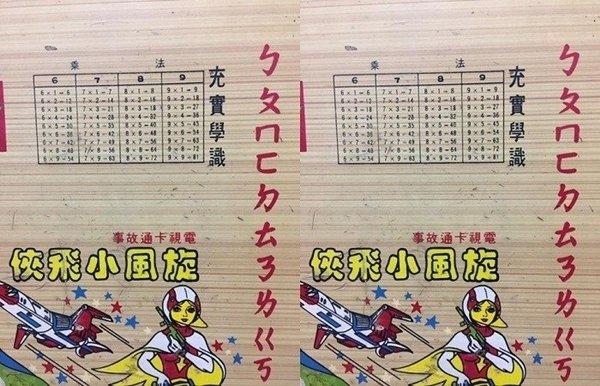 ㄅㄆㄇㄈㄉㄊㄋㄌㄍㄎ
充實學識
乘法
6 7 8 9
6×1=6 7×1=7 8×1=8 9×1=9
6×2=12 7×2=14 8×2=16 9×2=18
6×3=18 7×3=21 8×3=24 9×3=27
6×4=24 7×4=28 8×4=32 9×4=36
6×5=30 7×5=35 8×5=40 9×5=45
6×6=36 7×6=42 8×6=48 9×6=54
6×7=42 7×7=49 8×7=56 9×7=63
6×8=48 7×8=56 8×8=64 9×8=72
6×9=54 7×9=63 8×9=72 9×9=81
電視卡通故事
旋風小飛俠
ㄅㄆㄇㄈㄉㄊㄋㄌㄍㄎ
充實學識
乘法
6 7 8 9
6×1=6 7×1=7 8×1=8 9×1=9
6×2=12 7×2=14 8×2=16 9×2=18
6×3=18 7×3=21 8×3=24 9×3=27
6×4=24 7×4=28 8×4=32 9×4=36
6×5=30 7×5=35 8×5=40 9×5=45
6×6=36 7×6=42 8×6=48 9×6=54
6×7=42 7×7=49 8×7=56 9×7=63
6×8=48 7×8=56 8×8=64 9×8=72
6×9=54 7×9=63 8×9=72 9×9=81
電視卡通故事
旋風小飛俠